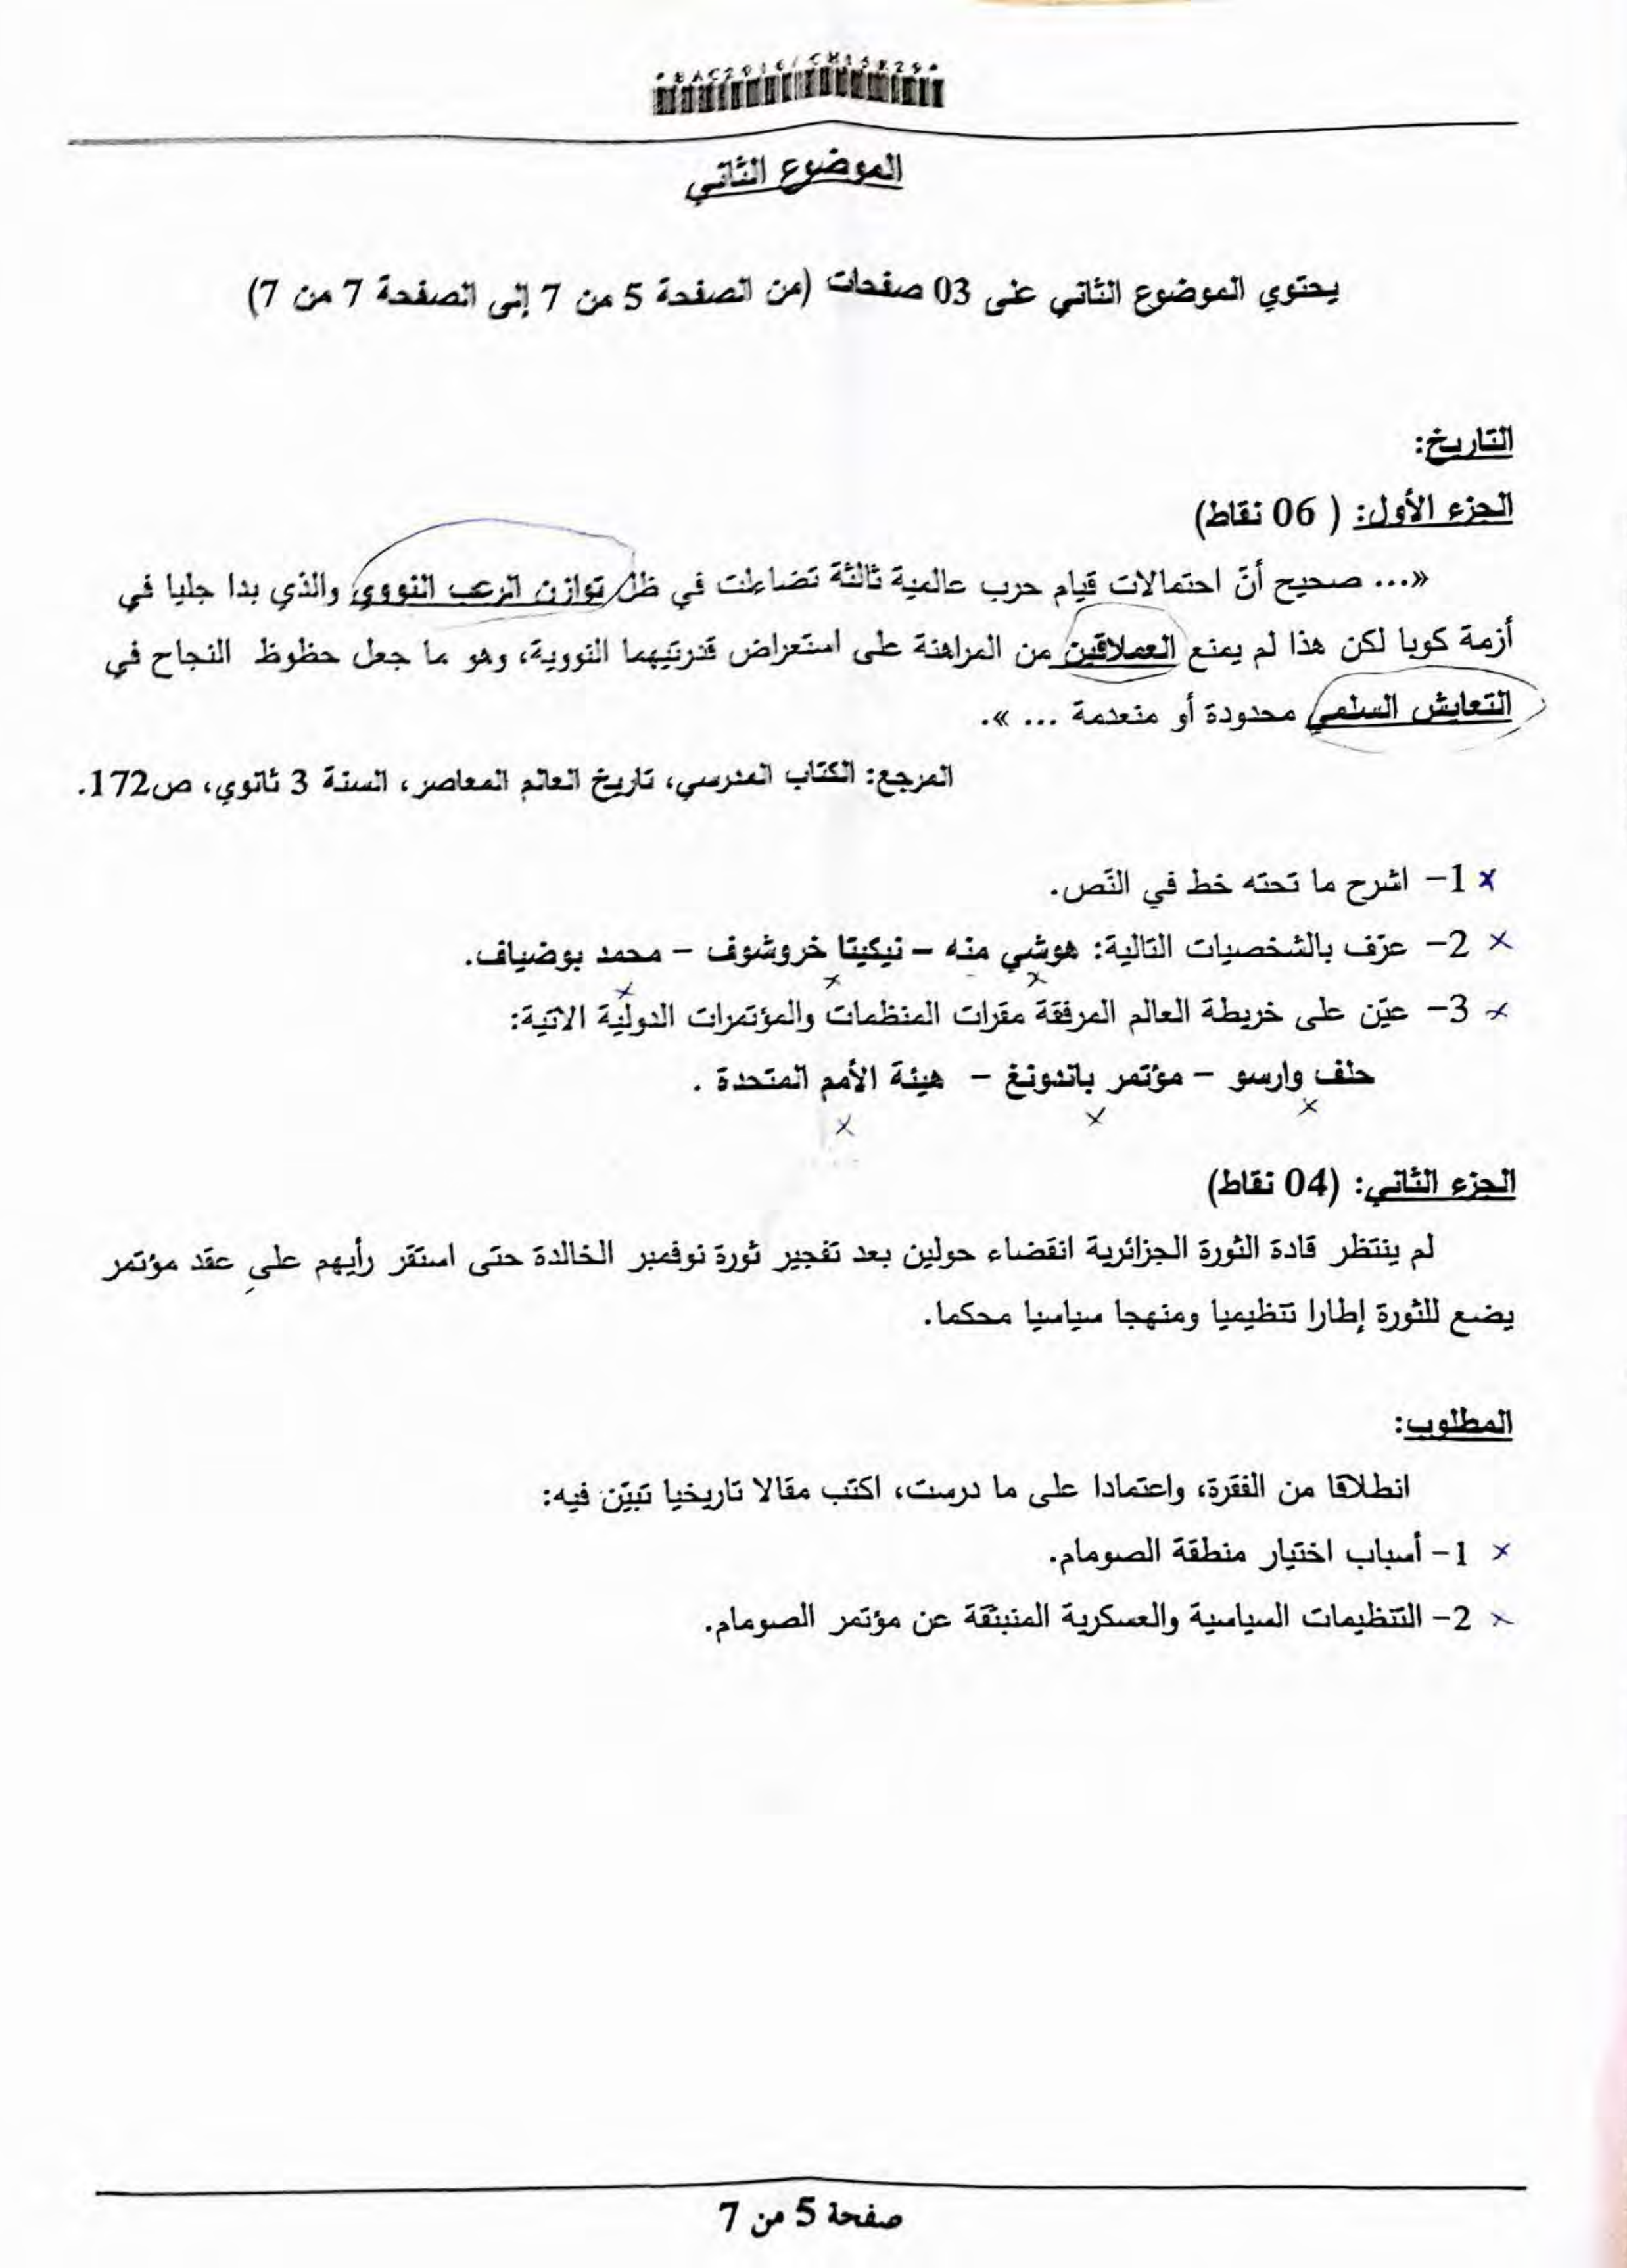 الموضوع الثاني
يحتوي الموضوع الثاني على 03 صفحات (من الصفحة 5 من 7 إلى الصفحة 7 من 7)
التاريخ:
الجزء الأول: ( 06 نقاط)
«... صحيح أنّ احتمالات قيام حرب عالمية ثالثة تضاءلت في ظل توازن الرعب النووي والذي بدا جليا في
أزمة كوبا لكن هذا لم يمنع العملاقين من المراهنة على استعراض قدرتيهما النووية، وهو ما جعل حظوظ النجاح في
التعايش السلمي محدودة أو منعدمة ... ».
المرجع: الكتاب المدرسي، تاريخ العالم المعاصر، السنة 3 ثانوي، ص172.
1- اشرح ما تحته خط في النّص.
2- عرّف بالشخصيات التالية: هوشي منه - نيكيتا خروشوف - محمد بوضياف.
3- عيّن على خريطة العالم المرفقة مقرات المنظمات والمؤتمرات الدولية الاتية:
حلف وارسو - مؤتمر باندونغ - هيئة الأمم المتحدة .
الجزء الثاني: (04 نقاط)
لم ينتظر قادة الثورة الجزائرية انقضاء حولين بعد تفجير ثورة نوفمبر الخالدة حتى استقر رأيهم على عقد مؤتمر
يضع للثورة إطارا تنظيميا ومنهجا سياسيا محكما.
المطلوب:
انطلاقا من الفقرة، واعتمادا على ما درست، اكتب مقالا تاريخيا تبيّن فيه:
1- أسباب اختيار منطقة الصومام.
2- التنظيمات السياسية والعسكرية المنبثقة عن مؤتمر الصومام.
صفحة 5 من 7